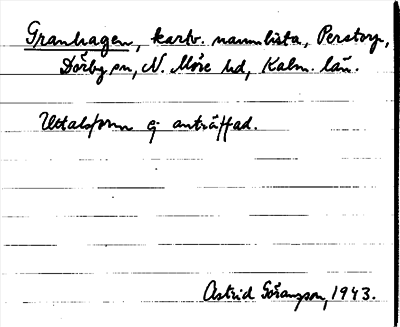 Granhagen, kartv. namnlista, Perstorp,
Dörby sn, N. Möre hd, Kalm. län.
Uttalsform ej anträffad.
Astrid Göransson, 1943.